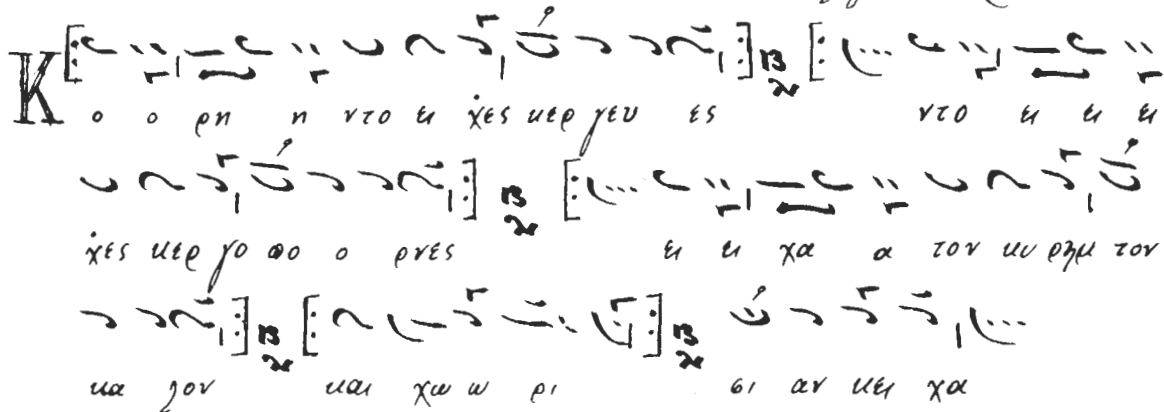 Κ ο ο ρη η ντο ει χες κερ γεν ες ντο ει ει ει
χες κερ γο πο ο ρνες ει ει χα α τον κυ ρημ τον
κα λον και χω ω ρι σι αν κει χα